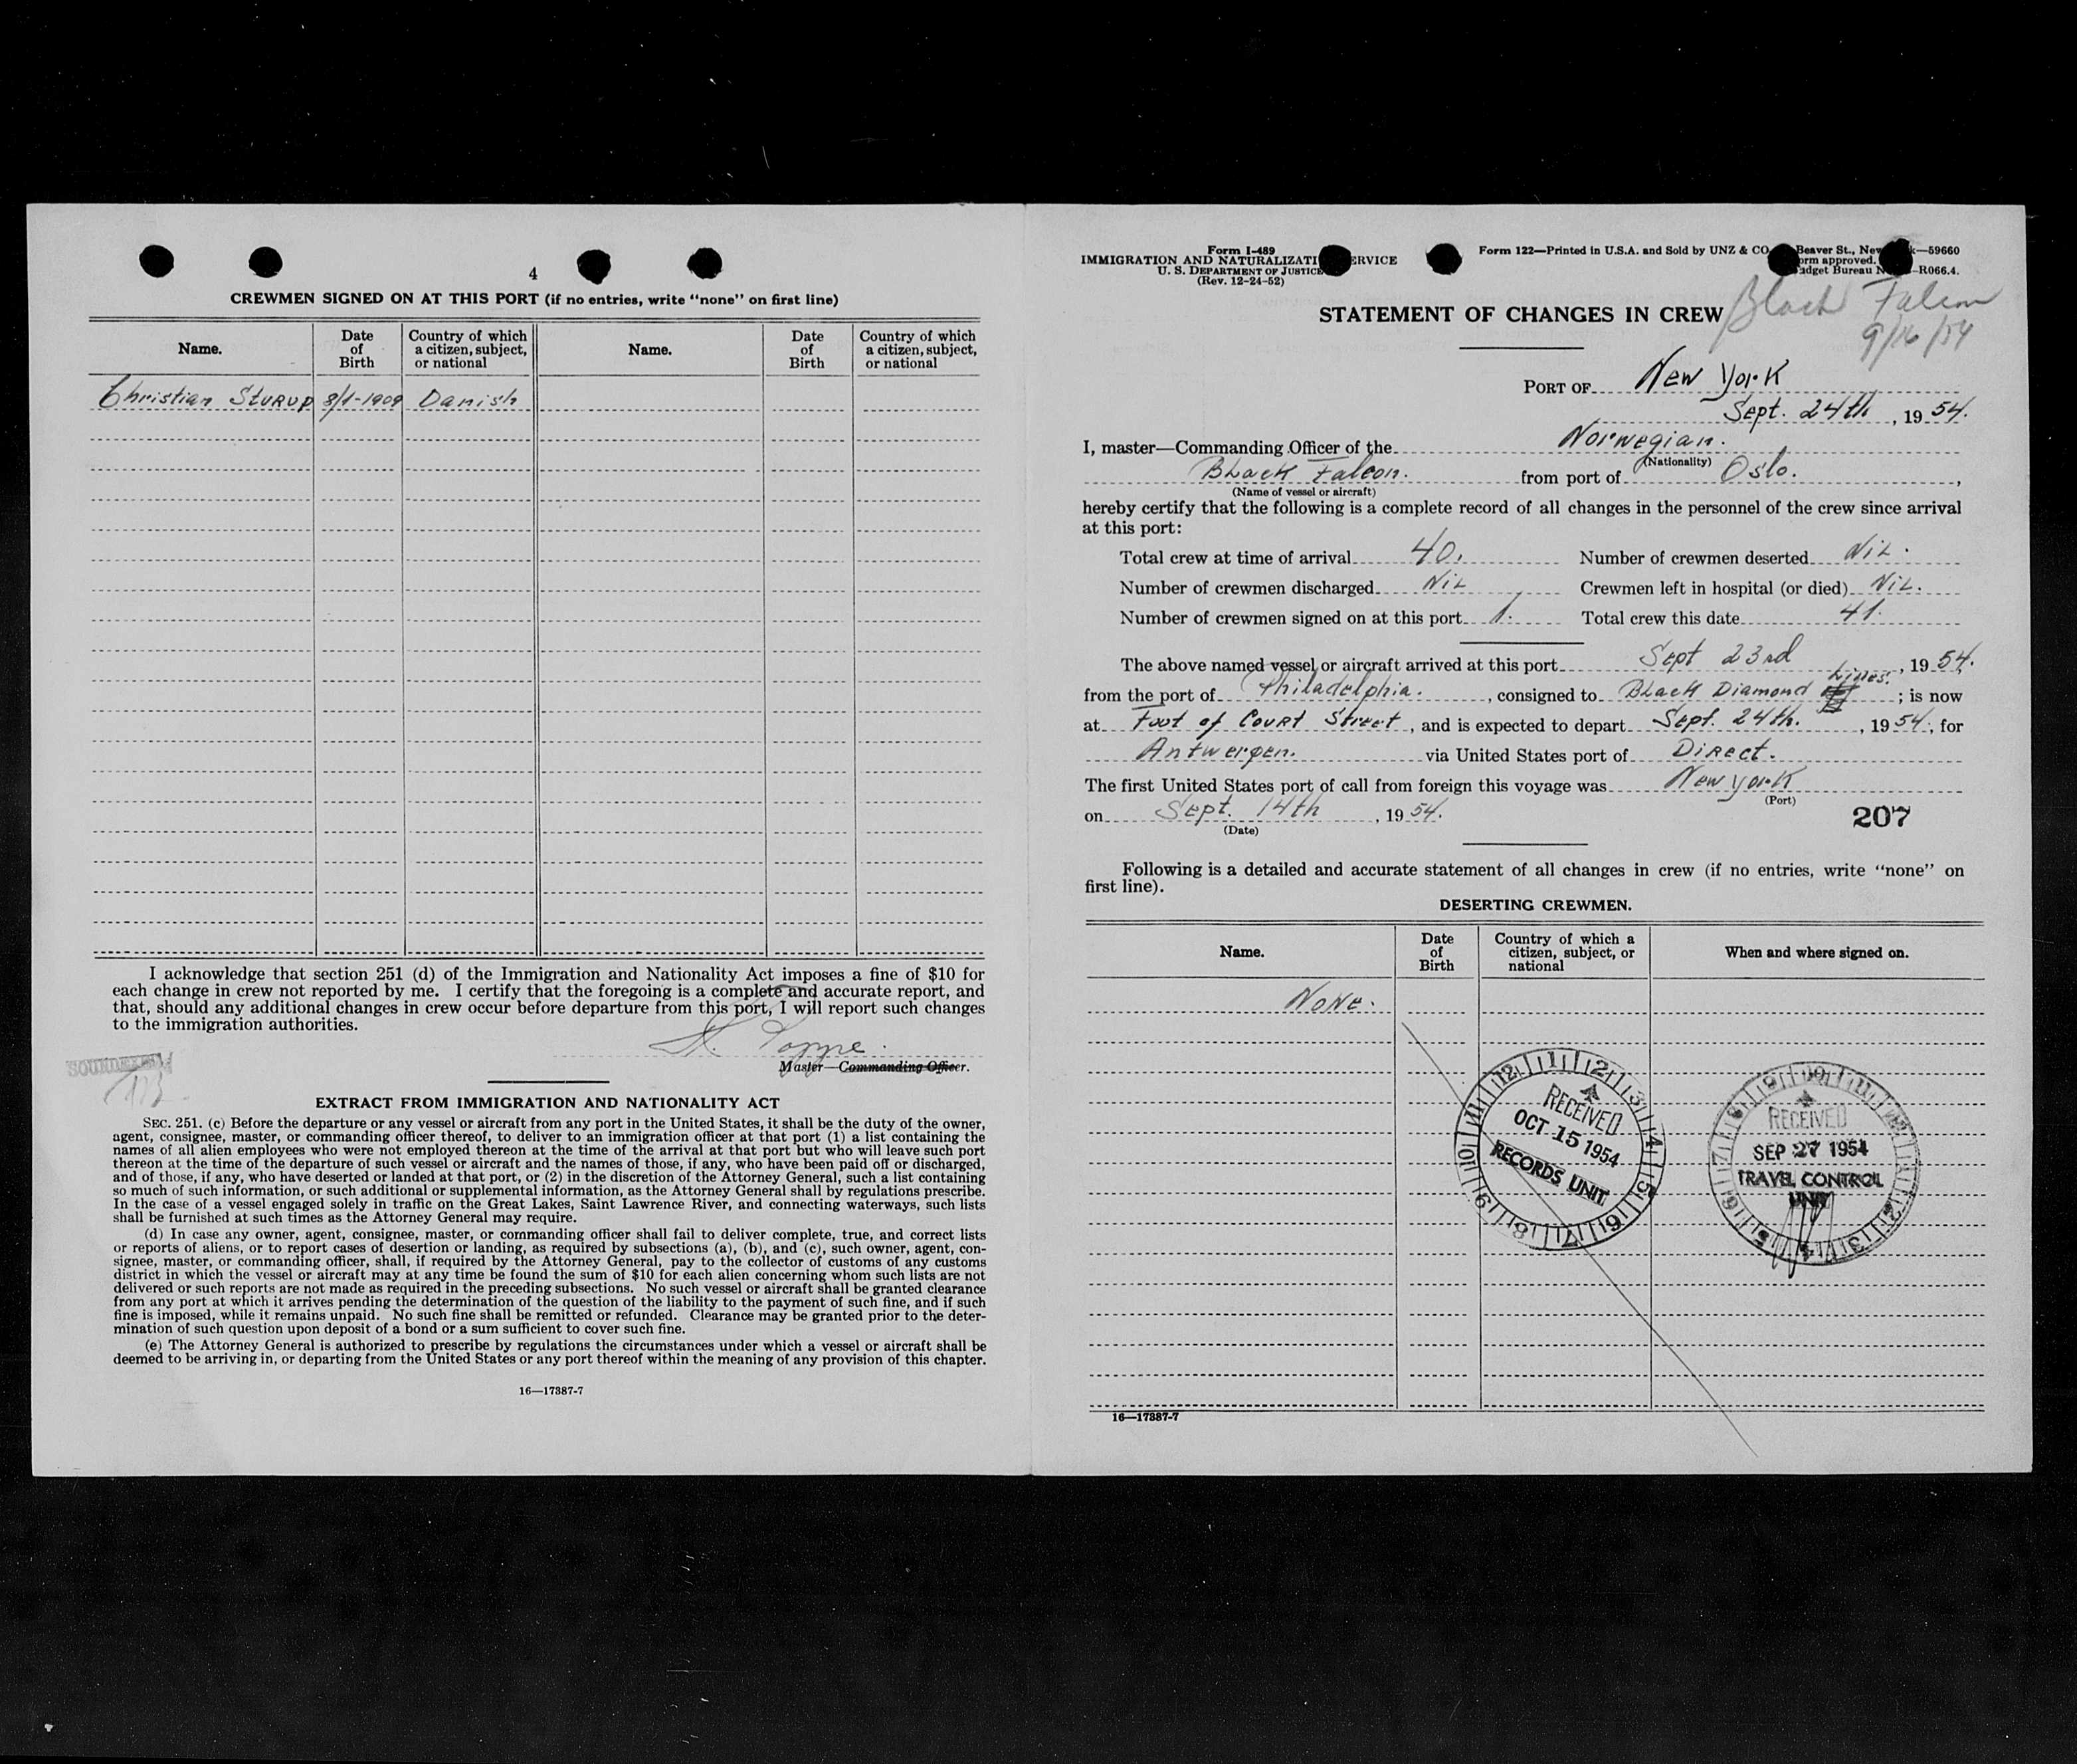 4
CREWMEN SIGNED ON AT THIS PORT (if no entries, write “none” on first line)
Name. Date of Birth Country of which a citizen, subject, or national Name. Date of Birth Country of which a citizen, subject, or national
Christian Sturup 8/1-1909 Danish
I acknowledge that section 251 (d) of the Immigration and Nationality Act imposes a fine of $10 for
each change in crew not reported by me. I certify that the foregoing is a complete and accurate report, and
that, should any additional changes in crew occur before departure from this port, I will report such changes
to the immigration authorities.
Master—Commanding Officer.
EXTRACT FROM IMMIGRATION AND NATIONALITY ACT
SEC. 251. (c) Before the departure or any vessel or aircraft from any port in the United States, it shall be the duty of the owner,
agent, consignee, master, or commanding officer thereof, to deliver to an immigration officer at that port (1) a list containing the
names of all alien employees who were not employed thereon at the time of the arrival at that port but who will leave such port
thereon at the time of the departure of such vessel or aircraft and the names of those, if any, who have been paid off or discharged,
and of those, if any, who have deserted or landed at that port, or (2) in the discretion of the Attorney General, such a list containing
so much of such information, or such additional or supplemental information, as the Attorney General shall by regulations prescribe.
In the case of a vessel engaged solely in traffic on the Great Lakes, Saint Lawrence River, and connecting waterways, such lists
shall be furnished at such times as the Attorney General may require.
(d) In case any owner, agent, consignee, master, or commanding officer shall fail to deliver complete, true, and correct lists
or reports of aliens, or to report cases of desertion or landing, as required by subsections (a), (b), and (c), such owner, agent, con-
signee, master, or commanding officer, shall, if required by the Attorney General, pay to the collector of customs of any customs
district in which the vessel or aircraft may at any time be found the sum of $10 for each alien concerning whom such lists are not
delivered or such reports are not made as required in the preceding subsections. No such vessel or aircraft shall be granted clearance
from any port at which it arrives pending the determination of the question of the liability to the payment of such fine, and if such
fine is imposed, while it remains unpaid. No such fine shall be remitted or refunded. Clearance may be granted prior to the deter-
mination of such question upon deposit of a bond or a sum sufficient to cover such fine.
(e) The Attorney General is authorized to prescribe by regulations the circumstances under which a vessel or aircraft shall be
deemed to be arriving in, or departing from the United States or any port thereof within the meaning of any provision of this chapter.
16—17387-7
Form I-489
IMMIGRATION AND NATURALIZATI ERVICE
U. S. DEPARTMENT OF JUSTICE
(Rev. 12-24-52)
Form 122—Printed in U.S.A. and Sold by UNZ & CO Beaver St., New k—59660
orm approved.
udget Bureau N —R066.4.
STATEMENT OF CHANGES IN CREW
Black Falcon
9/16/54
PORT OF New York
Sept. 24th, 1954.
I, master—Commanding Officer of the Norwegian.
(Nationality)
Black Falcon. from port of Oslo.,
(Name of vessel or aircraft)
hereby certify that the following is a complete record of all changes in the personnel of the crew since arrival
at this port:
Total crew at time of arrival 40. Number of crewmen deserted Nil.
Number of crewmen discharged Nil Crewmen left in hospital (or died) Nil.
Number of crewmen signed on at this port 1. Total crew this date 41.
The above named vessel or aircraft arrived at this port Sept 23rd, 1954.
from the port of Philadelphia., consigned to Black Diamond Lines.; is now
at Foot of Court Street, and is expected to depart Sept. 24th., 1954, for
Antwerpen. via United States port of Direct.
The first United States port of call from foreign this voyage was New York
(Port)
on Sept. 14th, 1954.
(Date)
207
Following is a detailed and accurate statement of all changes in crew (if no entries, write “none” on
first line).
DESERTING CREWMEN.
Name. Date of Birth Country of which a citizen, subject, or national When and where signed on.
None.
RECEIVED
OCT 15 1954
RECORDS UNIT
RECEIVED
SEP 27 1954
TRAVEL CONTROL
UNIT
16—17387-7